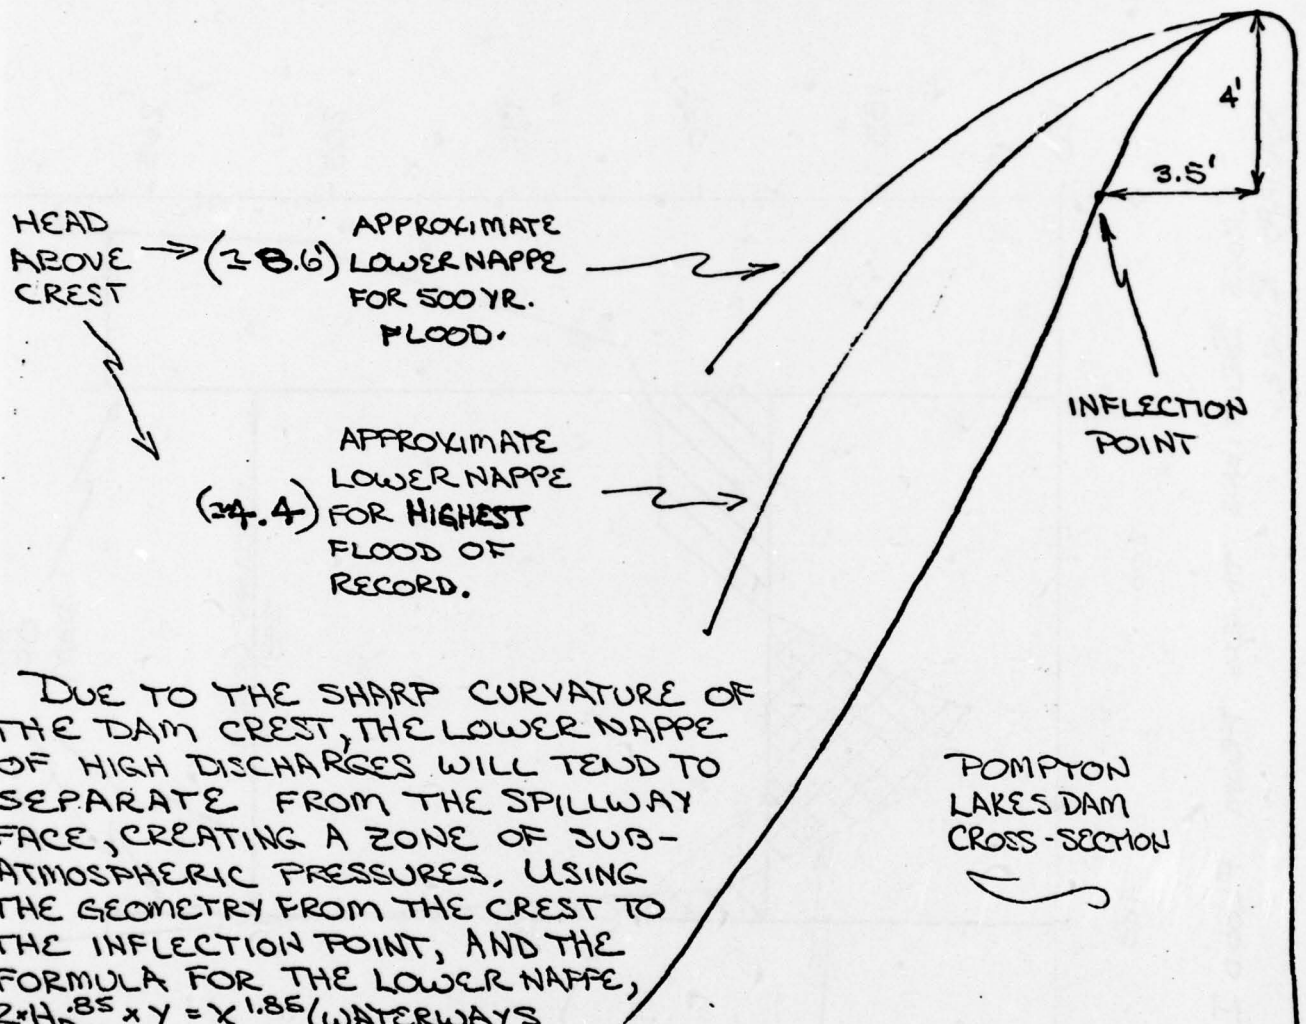 4'
3.5'
HEAD
ABOVE
CREST
(≃8.6')
APPROXIMATE
LOWER NAPPE
FOR 500 YR.
FLOOD.
INFLECTION
POINT
(≃4.4)
APPROXIMATE
LOWER NAPPE
FOR HIGHEST
FLOOD OF
RECORD.
DUE TO THE SHARP CURVATURE OF
THE DAM CREST, THE LOWER NAPPE
OF HIGH DISCHARGES WILL TEND TO
SEPARATE FROM THE SPILLWAY
FACE, CREATING A ZONE OF SUB-
ATMOSPHERIC PRESSURES. USING
THE GEOMETRY FROM THE CREST TO
THE INFLECTION POINT, AND THE
FORMULA FOR THE LOWER NAPPE,
.85 × Y = X^1.85 (WATERWAYS
POMPTON
LAKES DAM
CROSS-SECTION